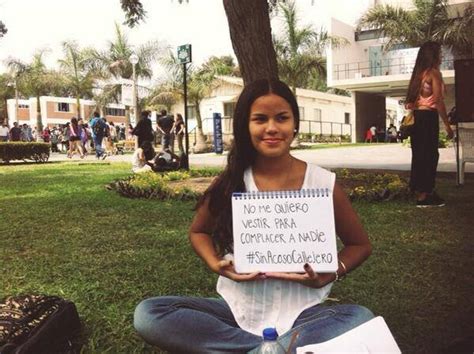 No me quiero
vestir para
complacer a nadie
#SinAcosoCallejero